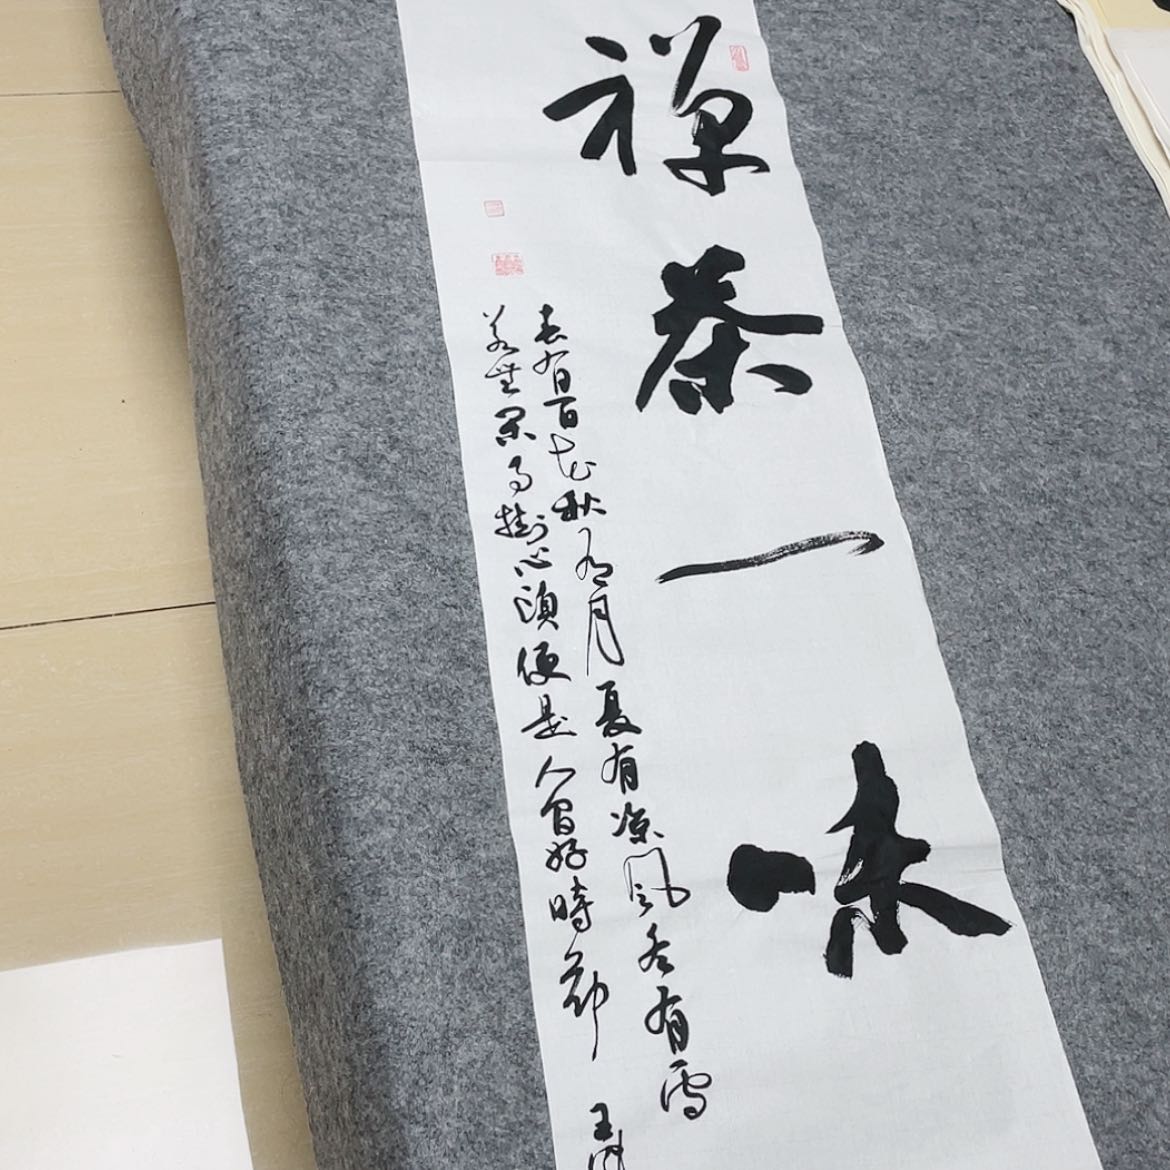 禅茶一味
春有百花秋有月夏有凉風冬有雪
若無閑事掛心頭便是人間好時節
王